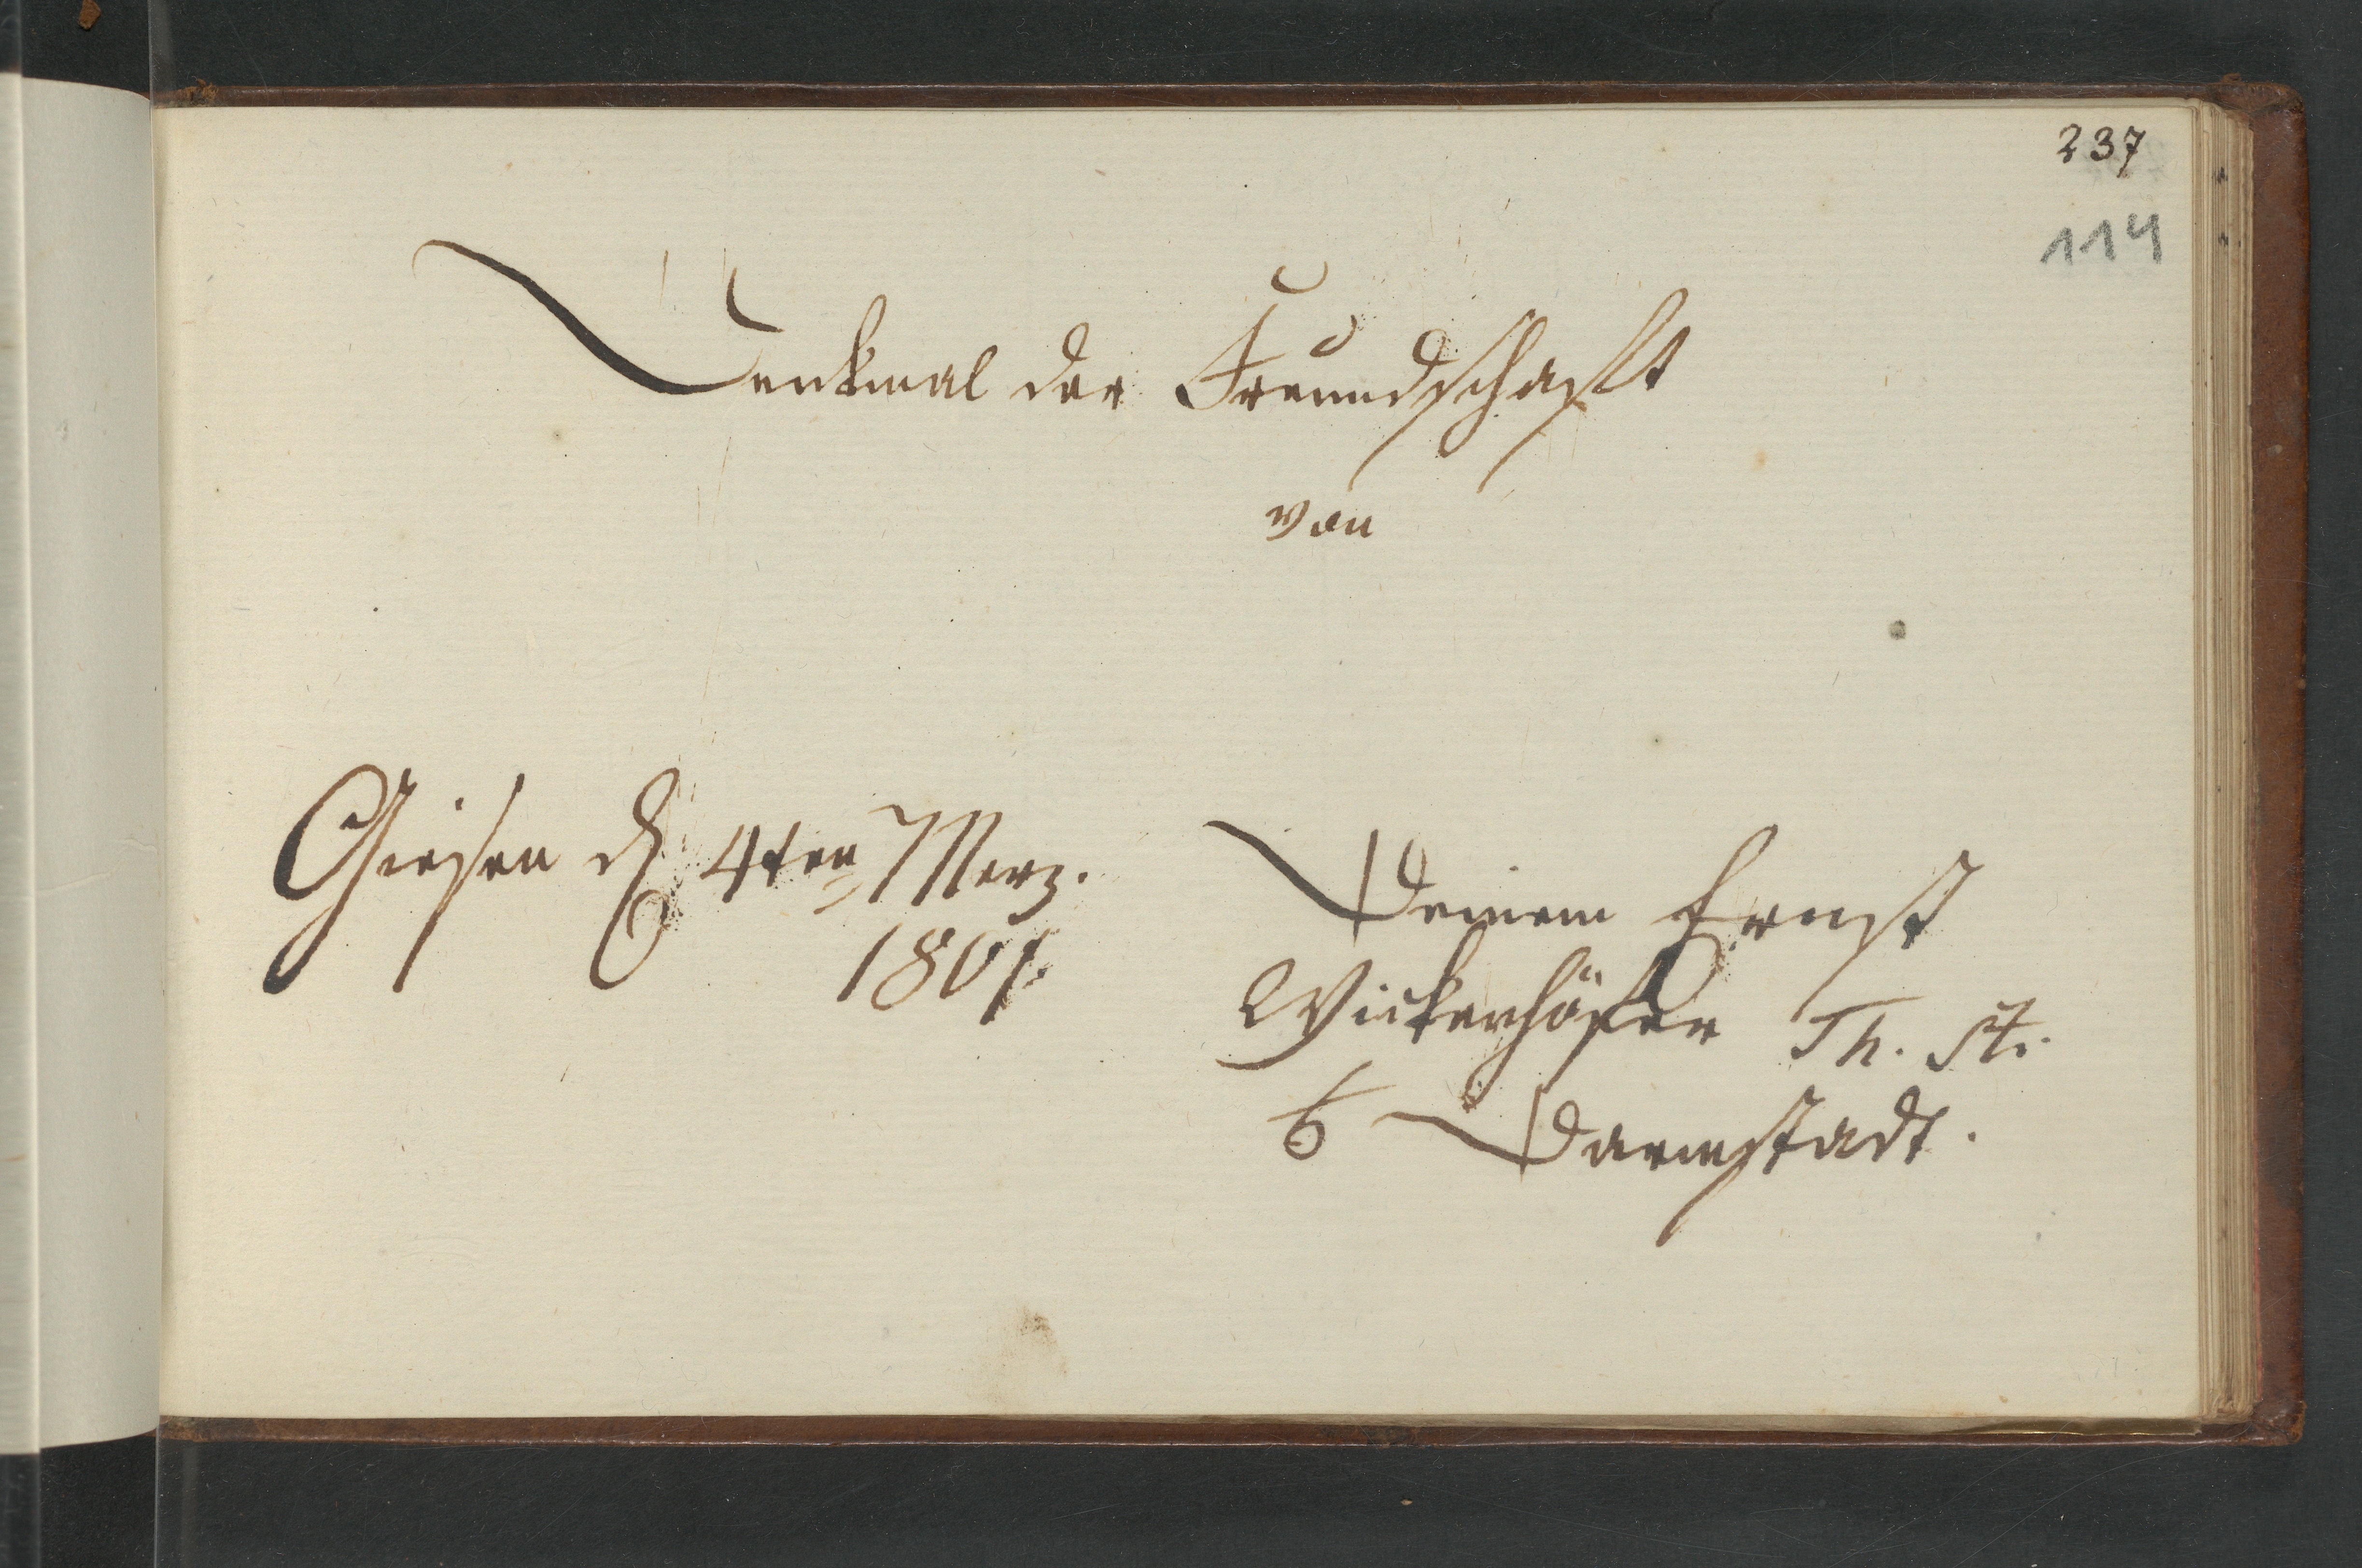 237
114
Denkmal der Freundschaft
von
Giesen d 4ten Merz.
1801.
Deinem Ernst
Wickenhöfer Th. St.
Darmstadt.